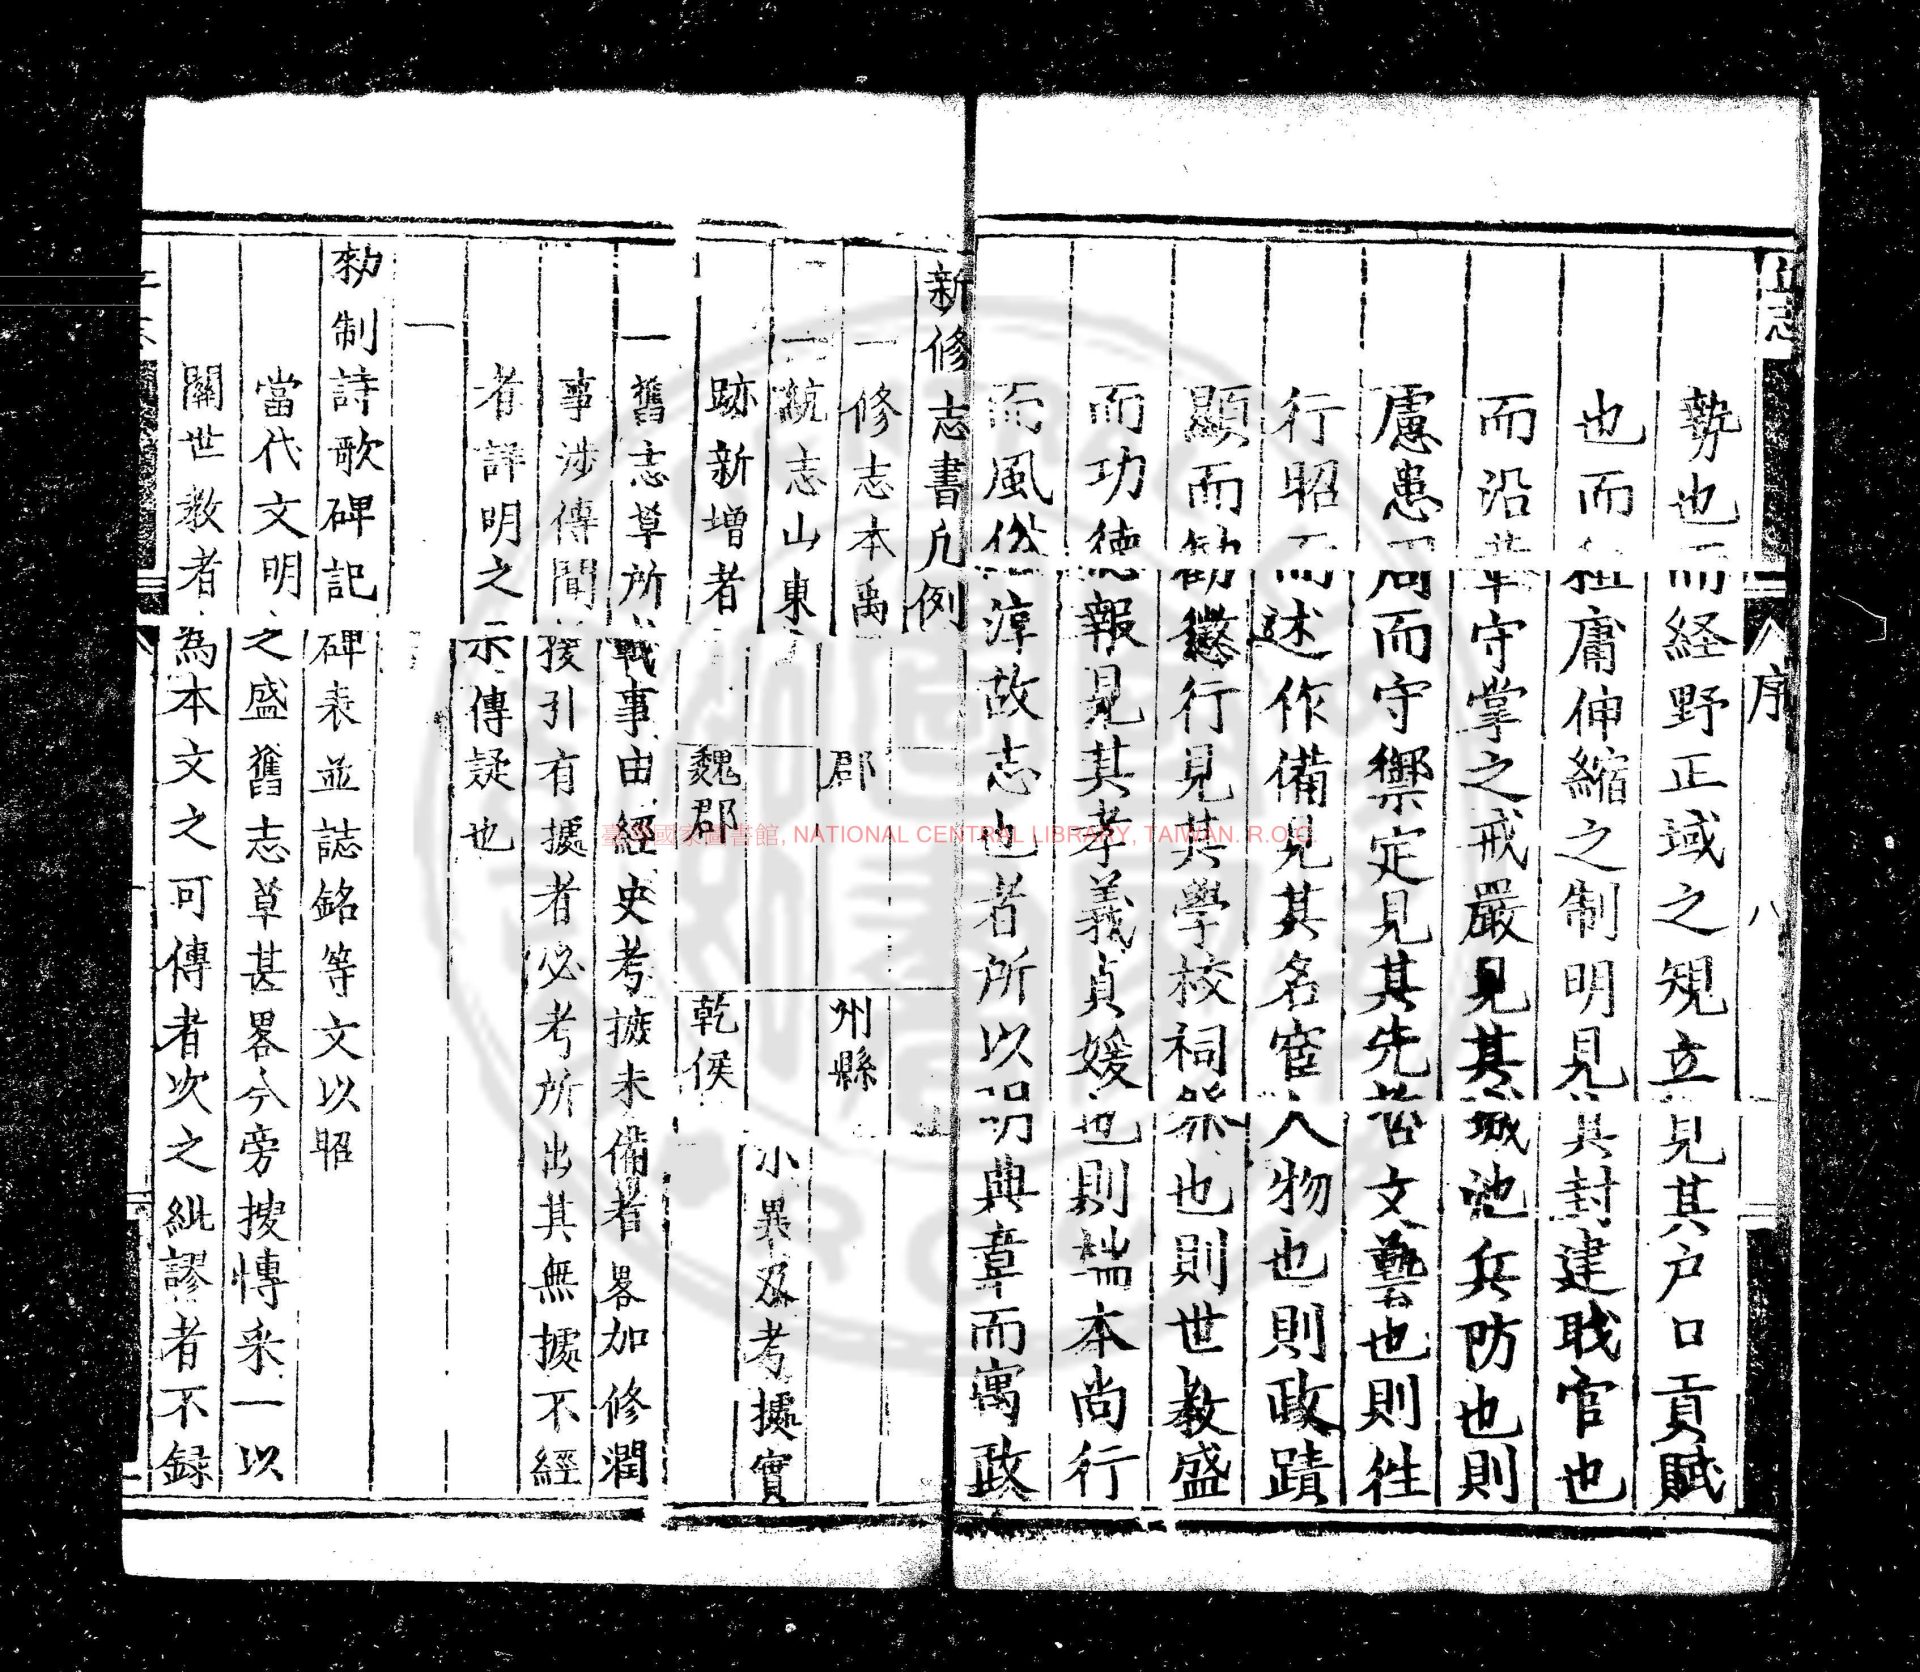 志
序
八
勢也而経野正域之規立見其户口貢賦
也而租庸伸縮之制明見其封建戢官也
而沿革守掌之戒嚴見其城池兵防也則
慮患周而守禦定見其先哲文藝也則徃
行昭而述作備見其名宦人物也則政蹟
顯而勸懲行見其學校祠祭也則世教盛
而功德報見其孝義貞媛也則端本尚行
而風俗淳故志也者所以明典章而寓政
新修志書凡例
一修志本禹
郡
州縣
一統志山東
小異及考據實
跡新增者
魏郡
乾侯
一舊志草所戰事由經史考摭未備者畧加修潤
事涉傳聞援引有據者必考所出其無據不經
者詳明之示傳疑也
一
勑制詩歌碑記碑表並誌銘等文以昭
當代文明之盛舊志草甚畧今旁搜慱采一以
關世教者為本文之可傳者次之紕謬者不録
臺灣國家圖書館, NATIONAL CENTRAL LIBRARY, TAIWAN. R.O.C